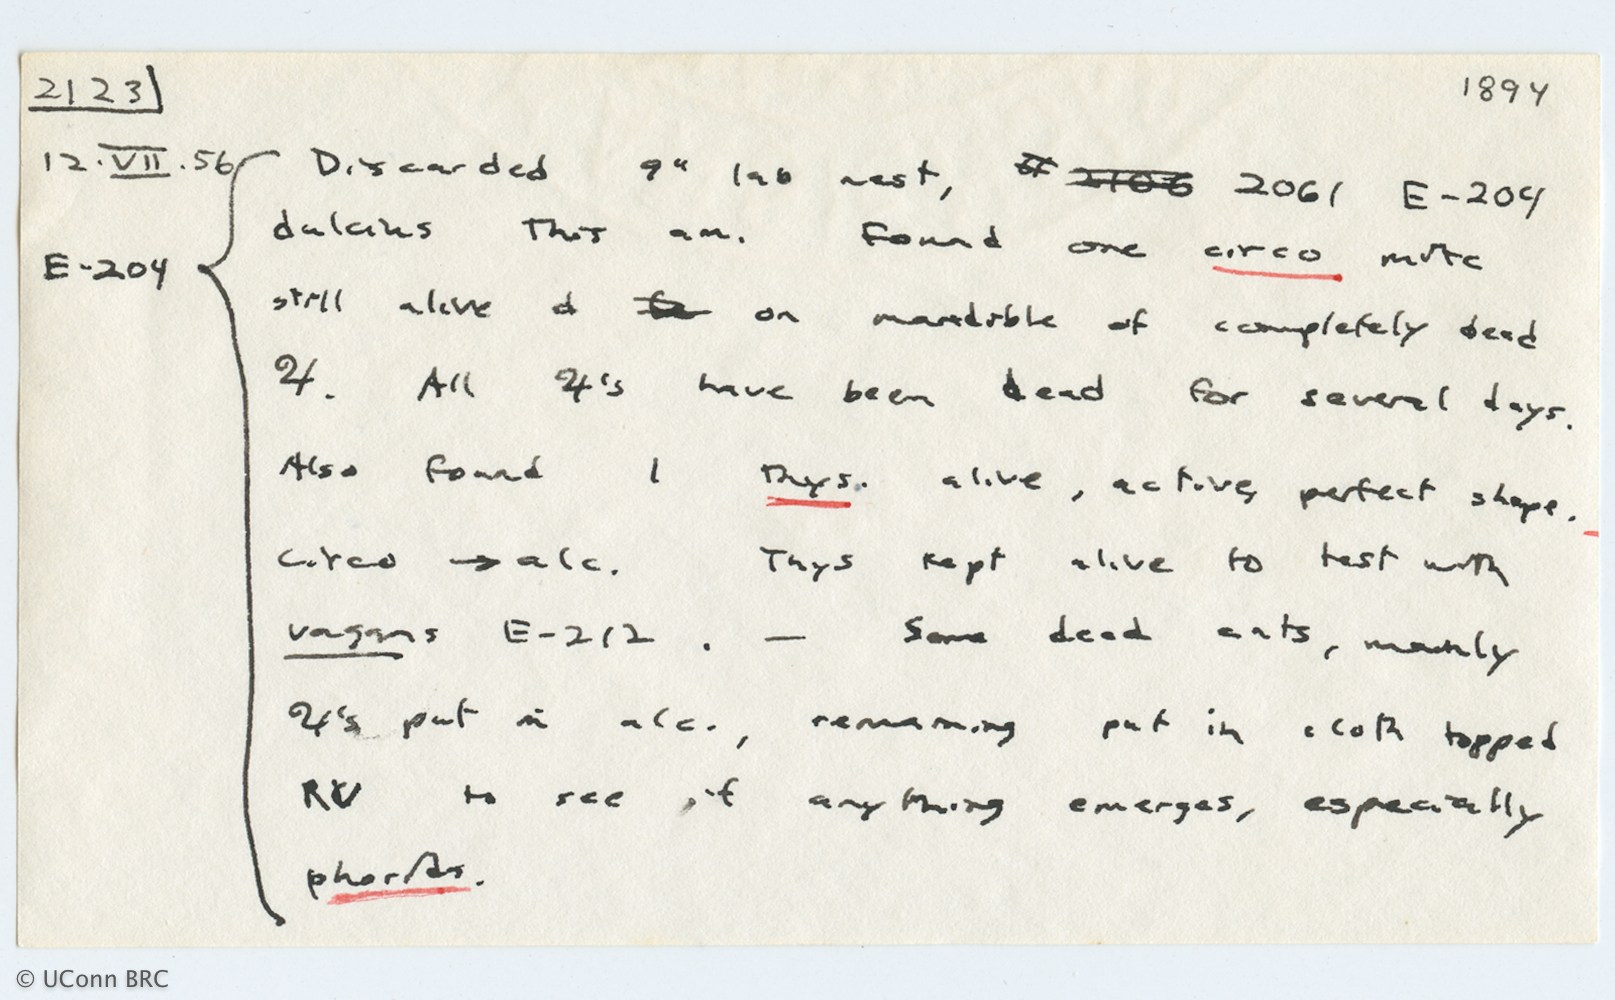 2123 1894
12.VII.56 Discarded 9" lab nest, # 2106 2061 E-204
dulcius This am. Found one circo mite
E-204
still alive & on mandible of completely dead
♃. All ♃'s have been dead for several days.
Also found 1 Thys. alive, active, perfect shape.
Circo → alc. Thys kept alive to test with
vagans E-212. — Some dead ants, mainly
♃'s put in alc., remaining put in cloth topped
RV to see if anything emerges, especially
phorids.
© UConn BRC